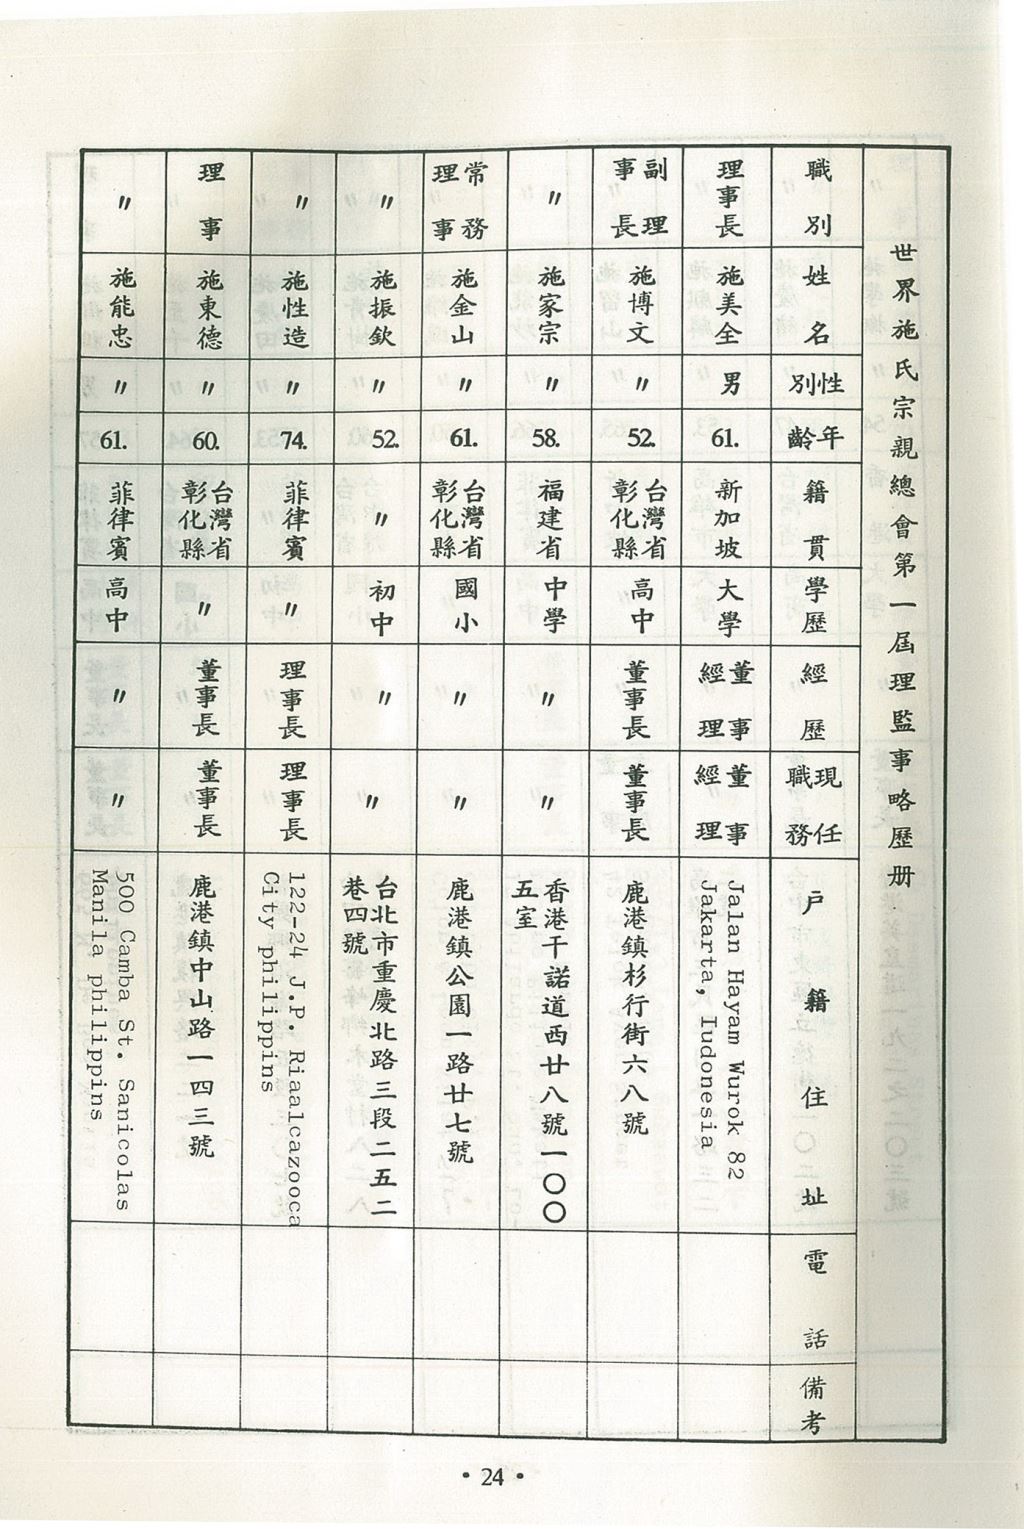 世界施氏宗親總會第一屆理監事略歷册
職別 姓名 性別 年齡 籍貫 學歷 經歷 現任職務 戶籍住址 電話 備考
理事長 施美全 男 61. 新加坡 大學 董事經理 董事經理 Jalan Hayam Wurok 82 Jakarta, Iudonesia
副理事長 施博文 〃 52. 台灣省彰化縣 高中 董事長 董事長 鹿港鎮杉行街六八號
〃 施家宗 〃 58. 福建省 中學 〃 〃 香港干諾道西廿八號一〇〇五室
常務理事 施金山 〃 61. 台灣省彰化縣 國小 〃 〃 鹿港鎮公園一路廿七號
〃 施振欽 〃 52. 〃 初中 〃 〃 台北市重慶北路三段二五二巷四號
〃 施性造 〃 74. 菲律賓 〃 理事長 理事長 122-24 J.P. Riaalcazooca City philippins
理事 施東德 〃 60. 台灣省彰化縣 〃 董事長 董事長 鹿港鎮中山路一四三號
〃 施能忠 〃 61. 菲律賓 高中 〃 〃 500 Camba St. Sanicolas Manila philippins
• 24 •